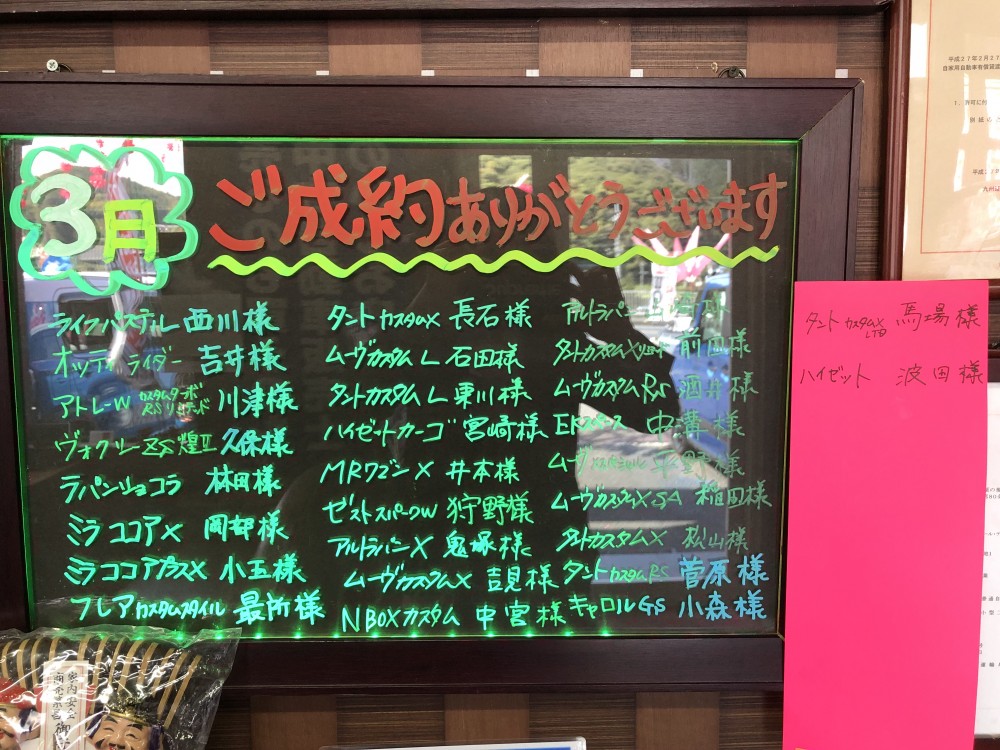 3月
ご成約ありがとうございます
ライフパステル 西川様
オッティ ライダー 吉井様
アトレーW カスタムターボRSリミテッド 川津様
ヴォクシーZS煌Ⅱ 久保様
ラパンショコラ 林田様
ミラ ココアX 岡部様
ミラ ココアプラスX 小玉様
フレア カスタムスタイル 最所様
タント カスタムX 長石様
ムーヴカスタム L 石田様
タントカスタム L 東川様
ハイゼットカーゴ 宮崎様
MRワゴン X 井本様
ゼストスパークW 狩野様
アルトラパン X 鬼塚様
ムーヴカスタムX 吉見様
NBOXカスタム 中宮様
アルトラパン
タントカスタムX 前田様
ムーヴカスタムRS 酒井様
EKスペース 中溝様
ムーヴ 平野様
ムーヴカスタムX SA 稲田様
タントカスタムX 松山様
タント カスタムRS 菅原様
キャロル GS 小森様
タント カスタムX
LTD
馬場様
ハイゼット 波田様
平成27年2月27
自家用自動車有償貸渡
家内安全
商売繁昌